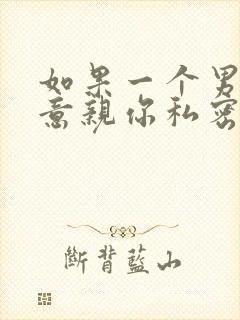 如果一个男
意亲你私密
斷背藍山